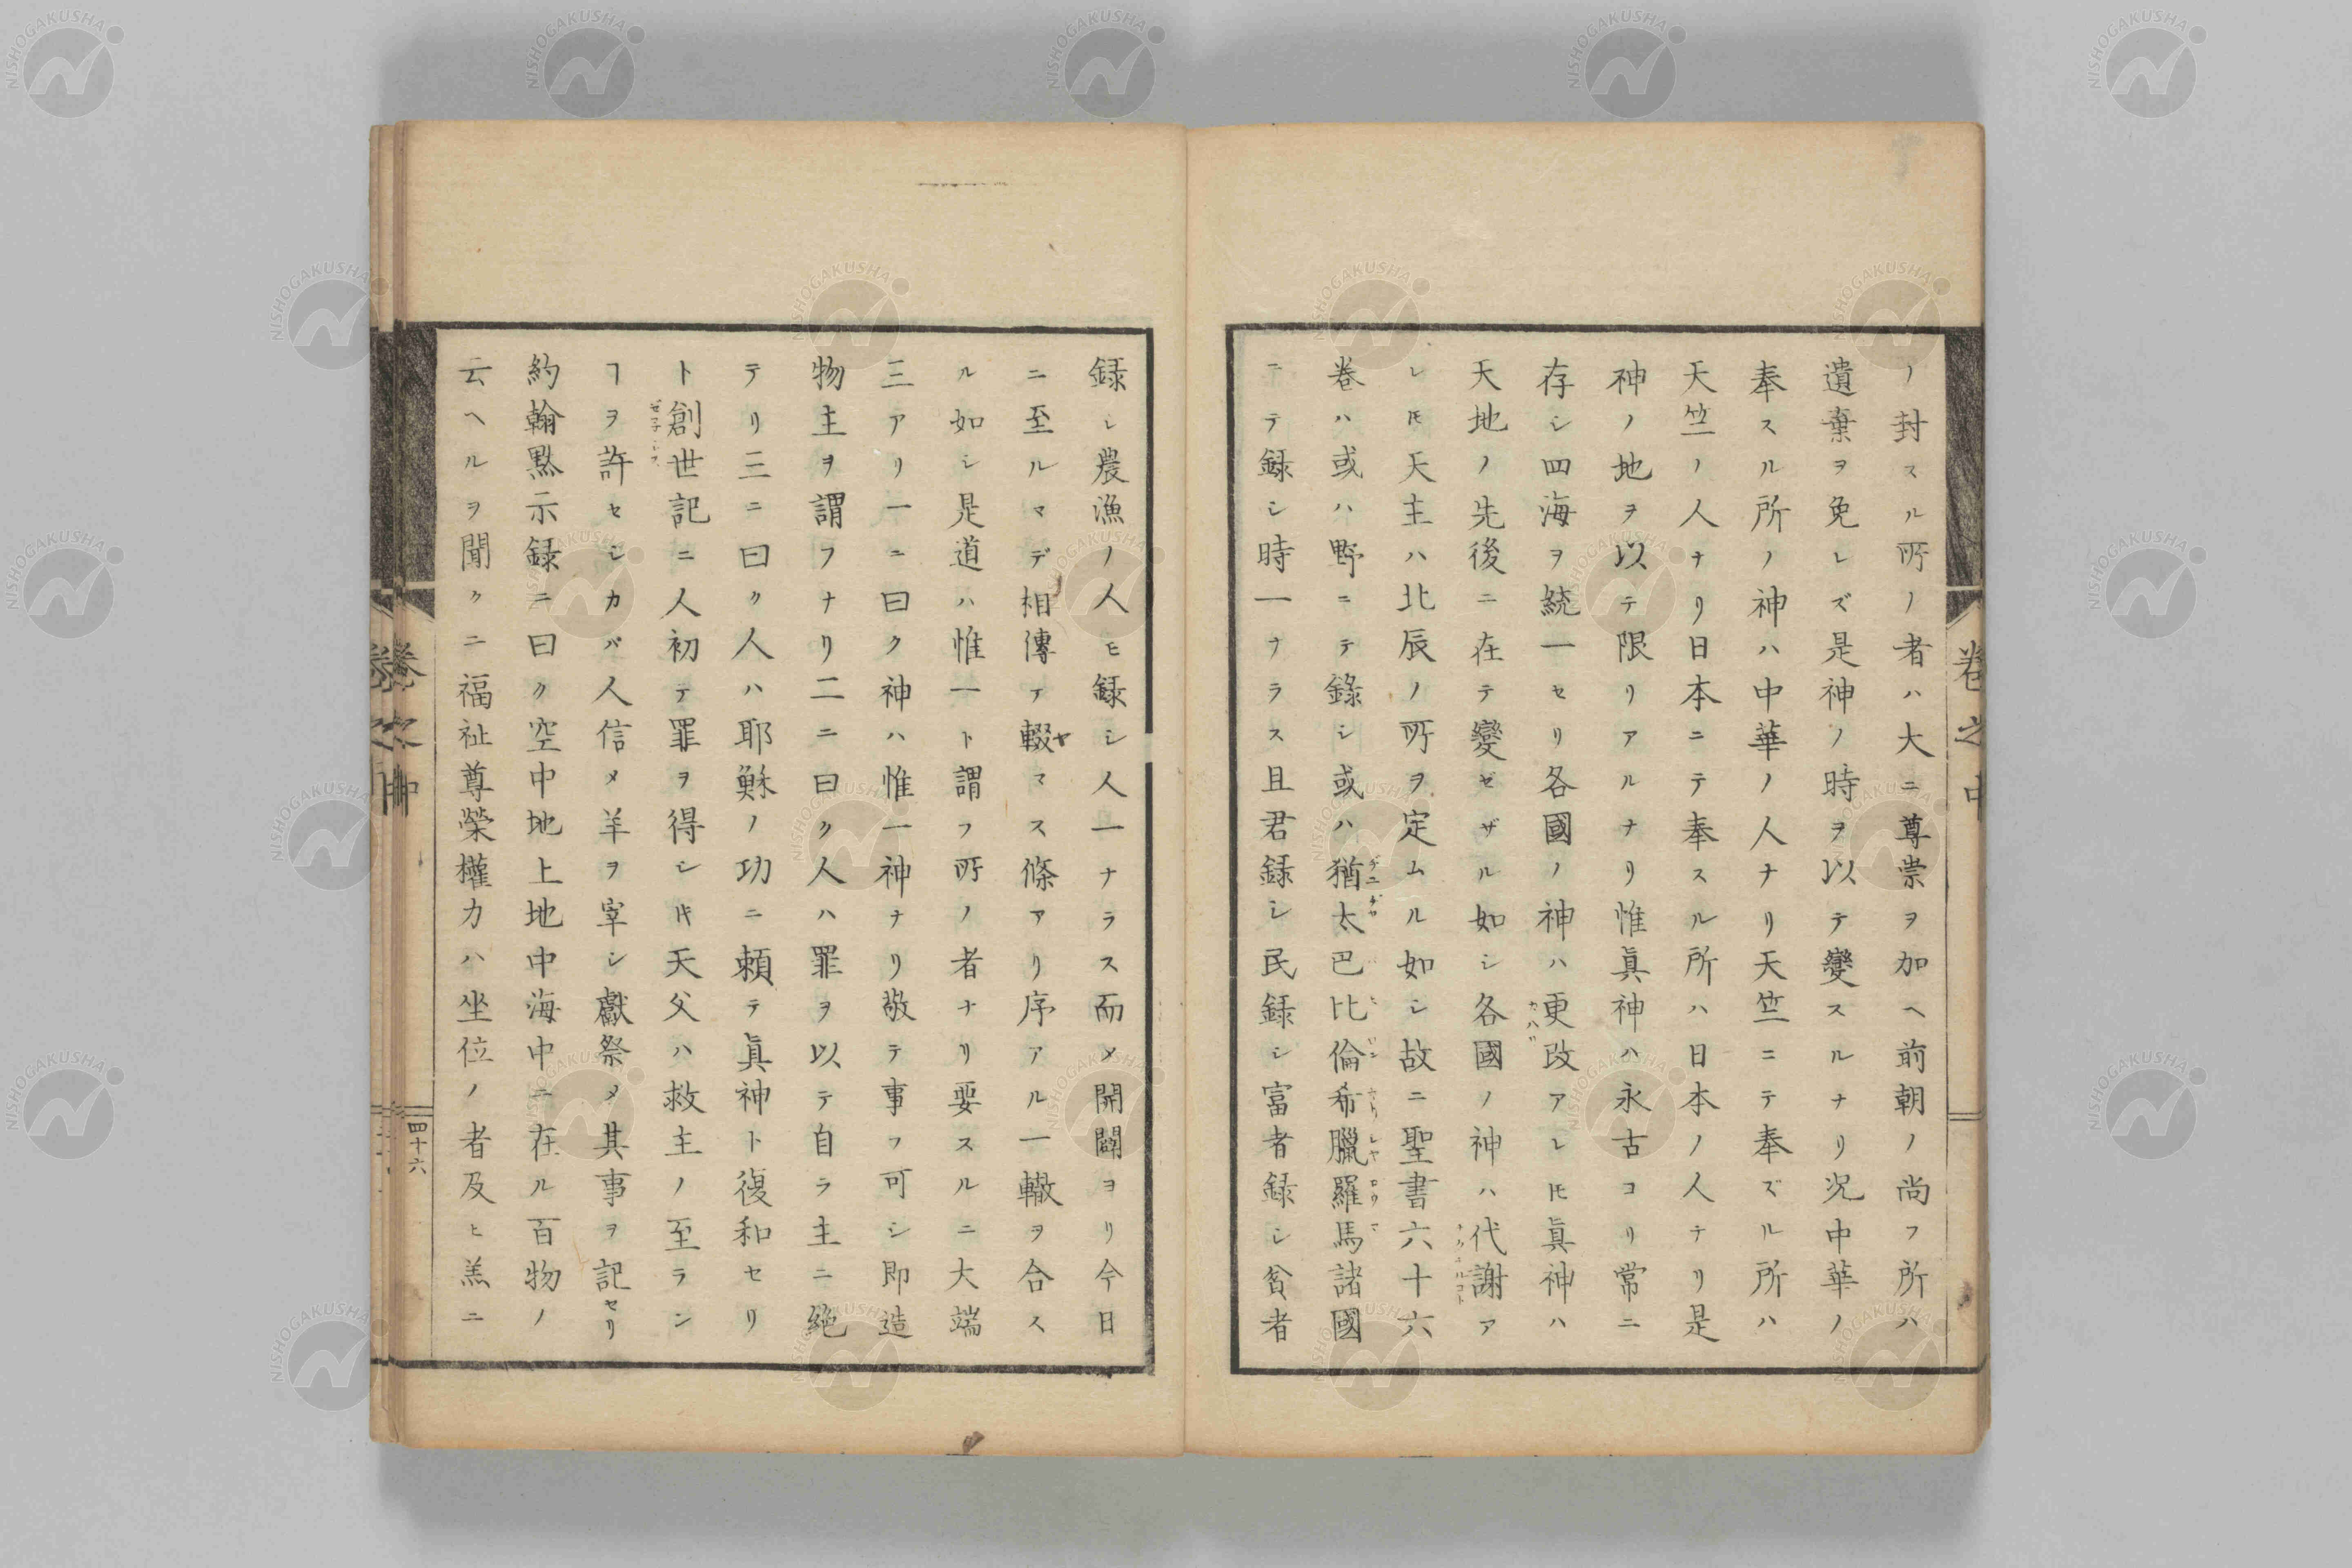 ノ封スル所ノ者ハ大ニ尊崇ヲ加ヘ前朝ノ尚フ所ハ
遺棄ヲ免レズ是神ノ時ヲ以テ變スルナリ况中華ノ
奉スル所ノ神ハ中華ノ人ナリ天竺ニテ奉ズル所ハ
天竺ノ人ナリ日本ニテ奉スル所ハ日本ノ人ナリ是
神ノ地ヲ以テ限リアルナリ惟眞神ハ永古ヨリ常ニ
存シ四海ヲ統一セリ各國ノ神ハ更改アレ𪜈眞神ハ
天地ノ先後ニ在テ變ゼザル如シ各國ノ神ハ代謝ア
レ𪜈天主ハ北辰ノ所ヲ定ムル如シ故ニ聖書六十六
巻ハ或ハ野ニテ錄シ或ハ猶太巴比倫希臘羅馬諸國
ニテ録シ時一ナラス且君録シ民録シ富者録シ貧者
録シ農漁ノ人モ録シ人一ナラス而メ開闢ヨリ今日
ニ至ルマデ相傳テ輟マス條アリ序アル一轍ヲ合ス
ル如シ是道ハ惟一ト謂フ所ノ者ナリ要スルニ大端
三アリ一ニ曰ク神ハ惟一神ナリ敬テ事フ可シ即造
物主ヲ謂フナリ二ニ曰ク人ハ罪ヲ以テ自ラ主ニ絶
テリ三ニ曰ク人ハ耶穌ノ功ニ頼テ眞神ト復和セリ
ト創世記ニ人初テ罪ヲ得シ㕦天父ハ救主ノ至ラン
ヿヲ許セシカバ人信メ羊ヲ宰シ獻祭メ其事ヲ記セリ
約翰黙示録ニ曰ク空中地上地中海中ニ在ル百物ノ
云ヘルヲ聞クニ福祉尊榮權力ハ坐位ノ者及ヒ羔ニ
卷之中
四十六
NISHOGAKUSHA